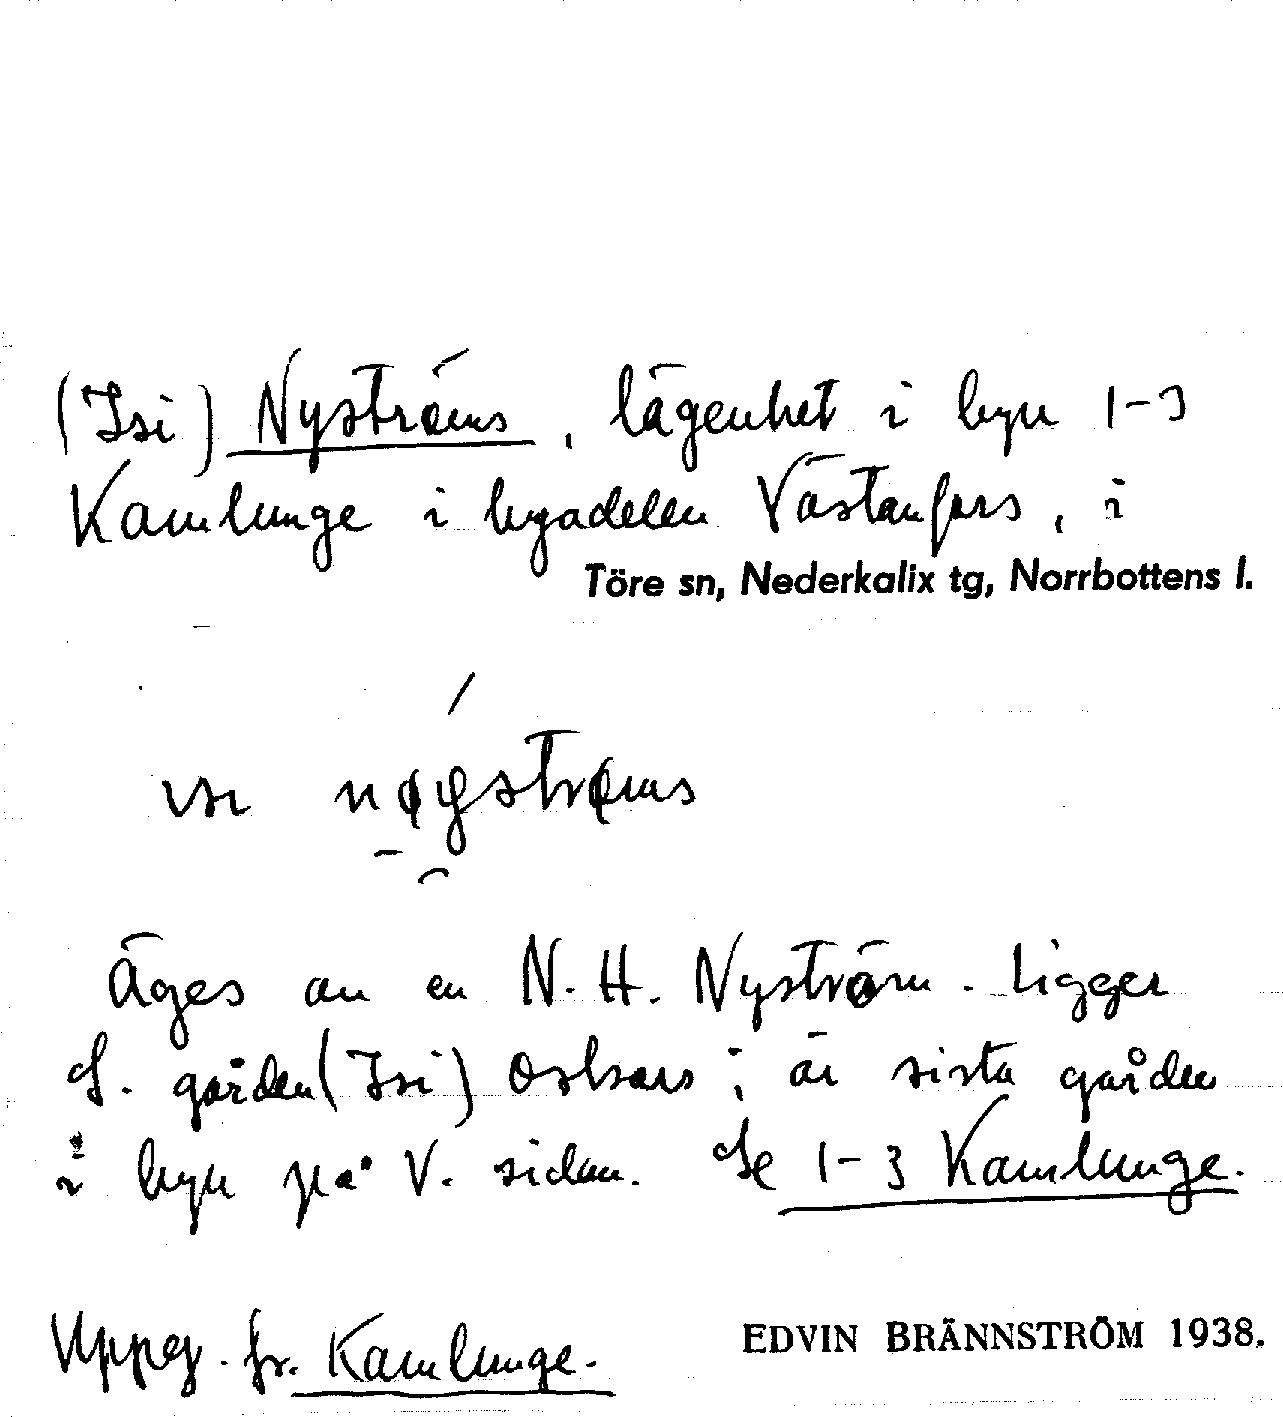 (Isi) Nyströms, lägenhet i byn 1-3
Kamlunge i byadelen Västanfors, i
Töre sn, Nederkalix tg, Norrbottens l.
nøystrøms
Äges av en N. H. Nyström. Ligger
S. gården (Isi) Oskars; är sista gården
i byn på V. sidan. Se 1-3 Kamlunge.
Uppg. fr. Kamlunge.
EDVIN BRÄNNSTRÖM 1938.